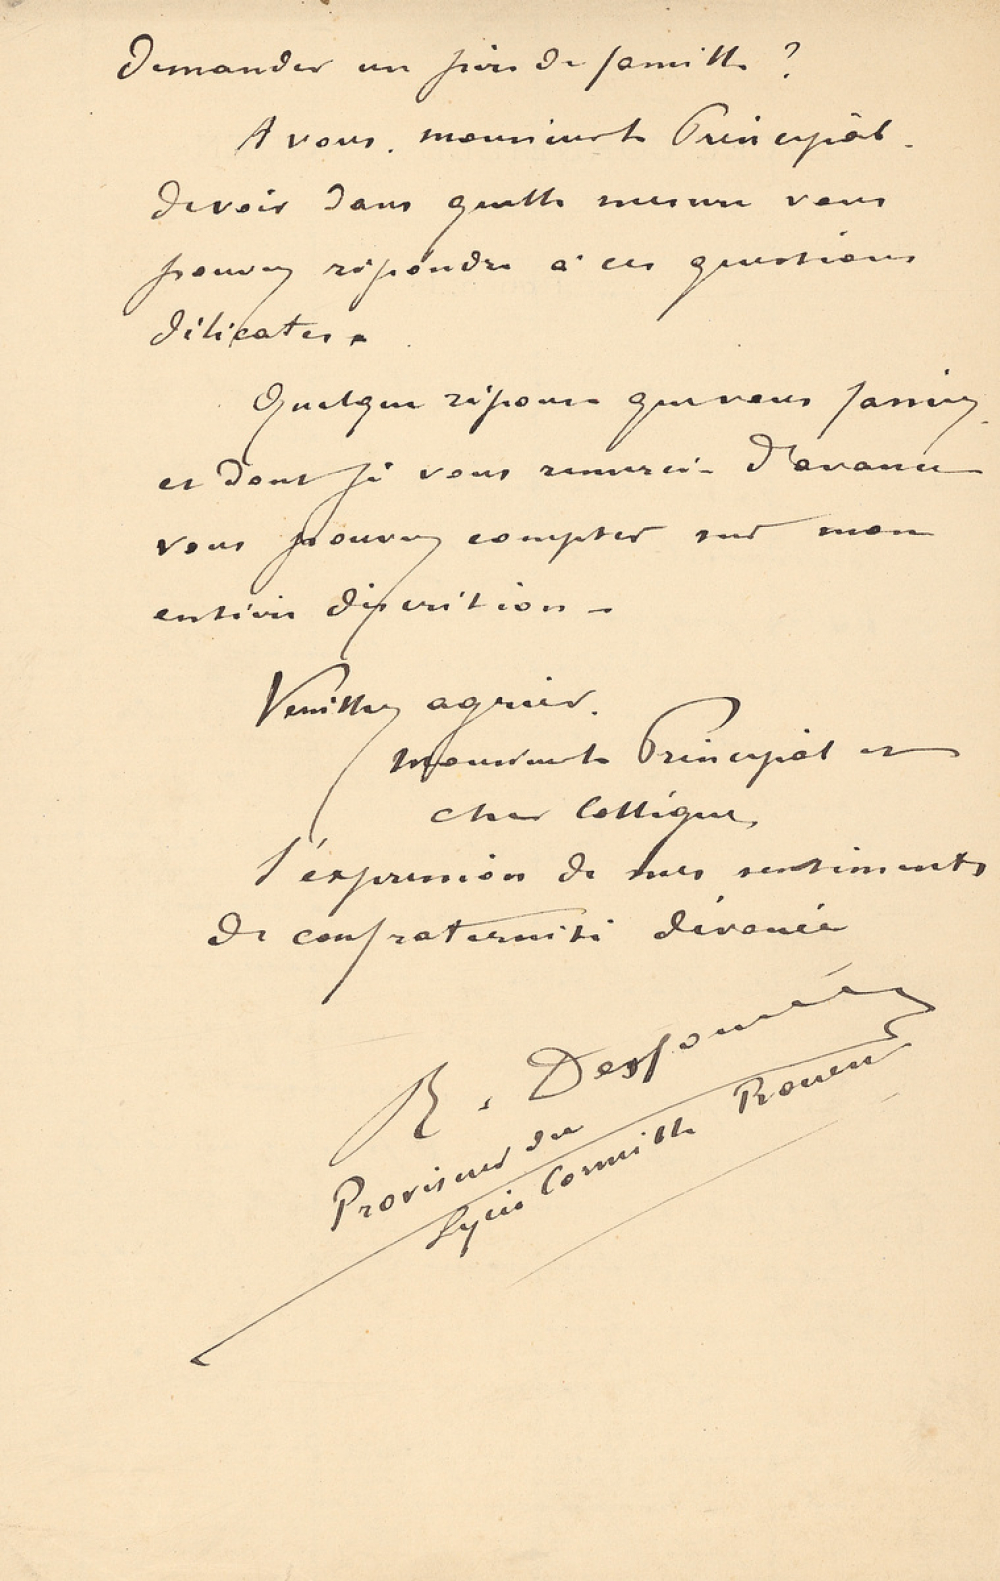 demander un père de famille ?
A vous, monsieur le Principal,
de voir dans quelle mesure vous
pouvez répondre à ces questions
délicates.
Quelque réponse que vous fassiez,
et dont je vous remercie d'avance
vous pouvez compter sur mon
entière discrétion –
Veuillez agréer,
monsieur le Principal et
cher Collègue,
l'expression de mes sentiments
de confraternité dévouée
R.
Proviseur du
Lycée Corneille Rouen